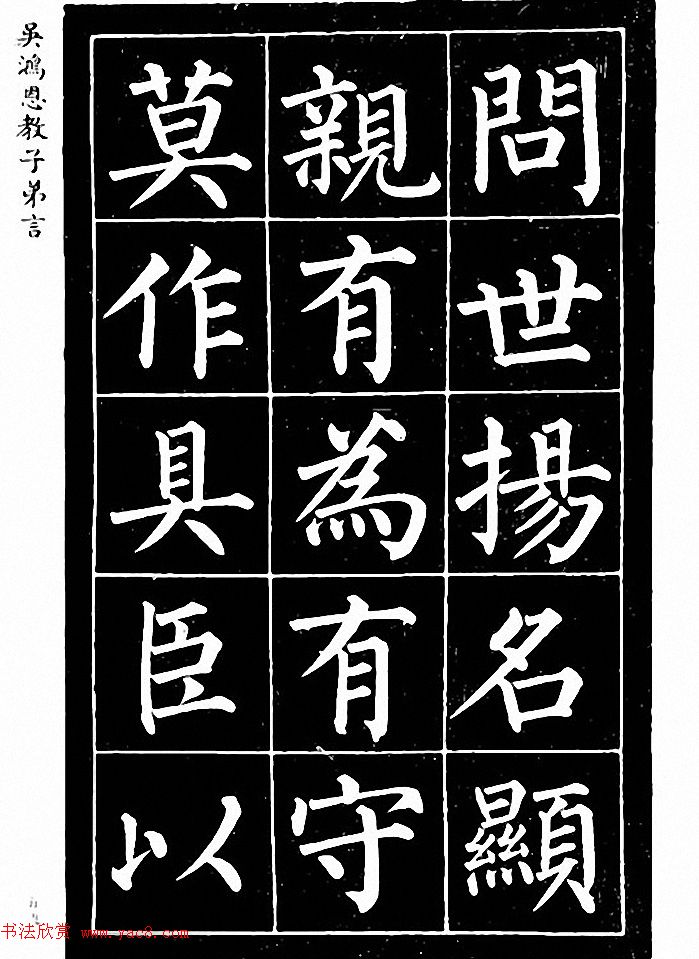 問世揚名顯
親有為有守
莫作具臣以
吳鴻恩教子弟言
书法欣赏 www.yac8.com